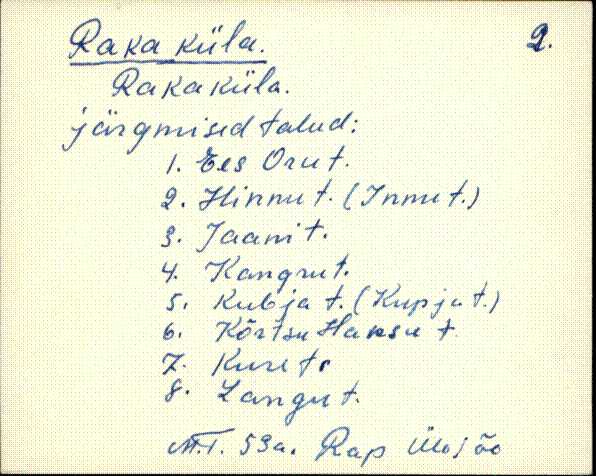 Raka küla. 2.
Raka küla.
järgmised talud:
1. Ees Oru t.
2. Hinnu t. (Innu t.)
3. Jaani t.
4. Kangru t.
5. Kubja t. (Kupja t.)
6. Kõrtsu Hansu t.
7. Kure t.
8. Langu t.
53a. Rap